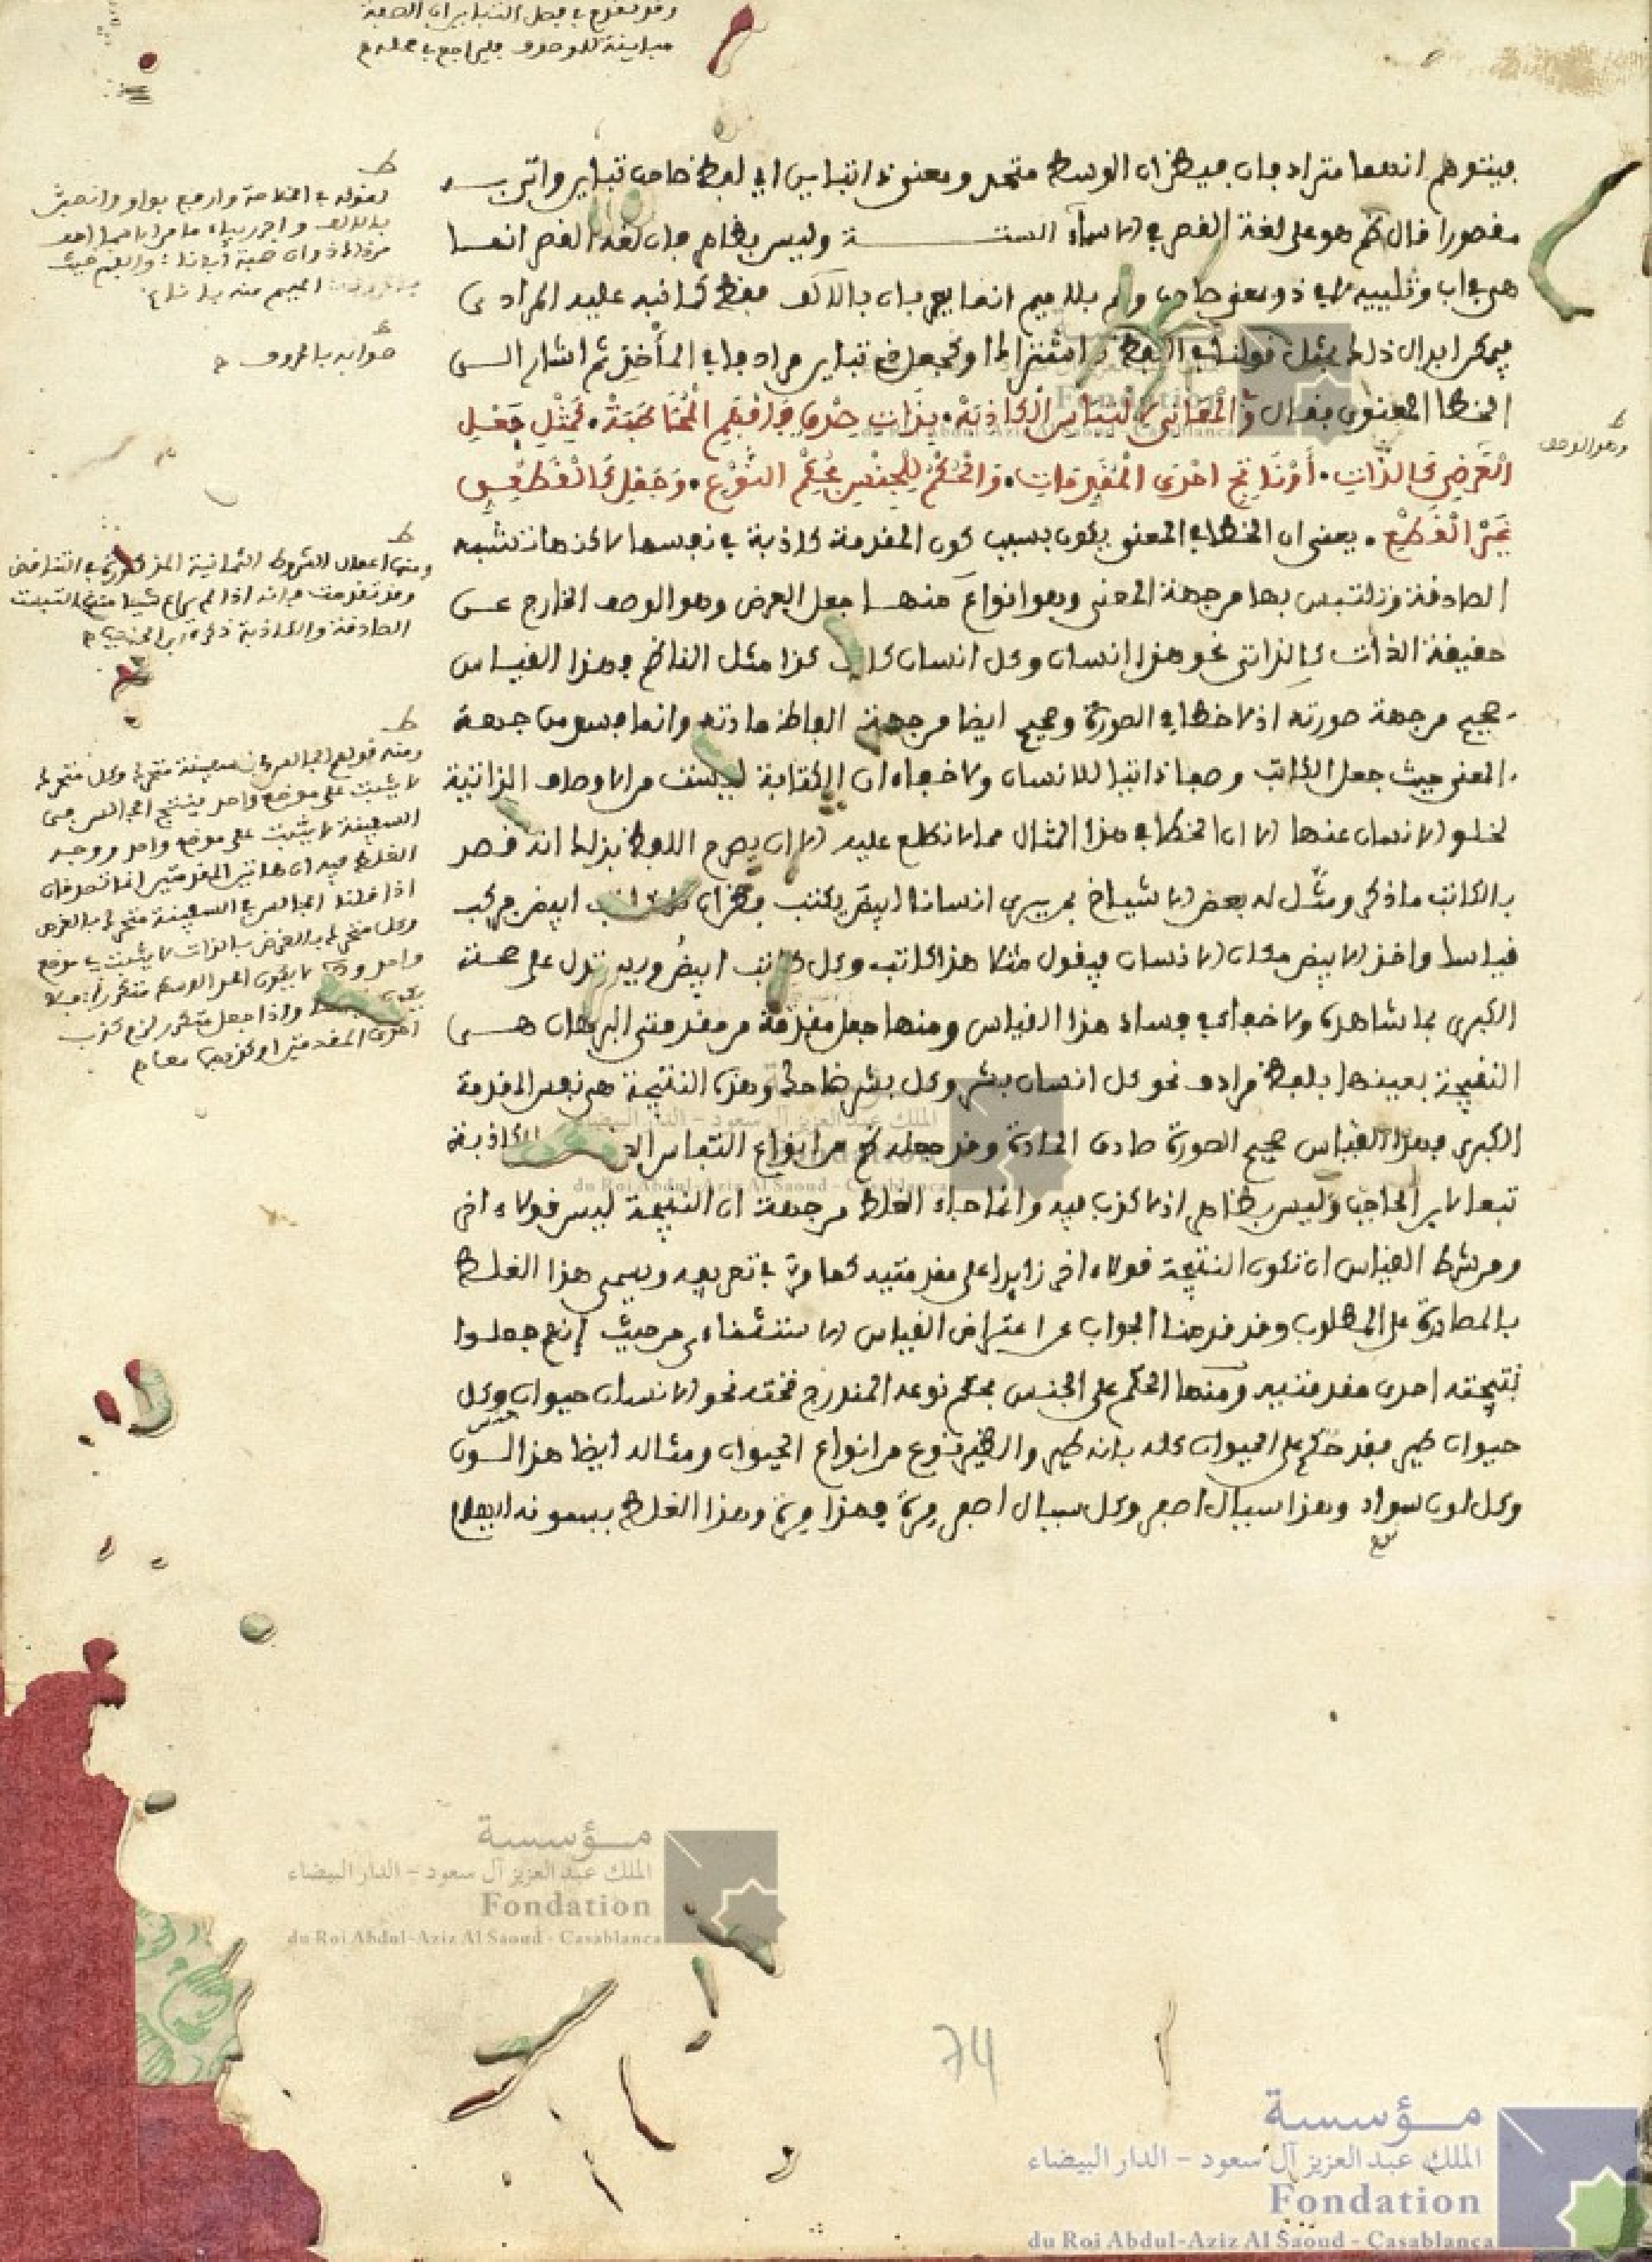 وقد تقدم في فصل التباين ان الصفة
مباينة للموصوف فليراجع في محله
فيتوهم انهما مترادفان فيظن ان الوسط متحد ومعنى ذا تباين اي لفظ خاص تباين واتى به
مقصورا قال ظم هو على لغة القصر في الاسماء الستة وليس بظاهر فان لغة القصر انما
هي في اب وتالييه لا في ذو بمعنى صاحب ولا فم بلا ميم انما يعربان بالالف فقط كما نبه عليه المرادي
فيمكن ابدال ذلك بمثل قولنا في اللفظ كاشتراك او كجعل ذي تباين مرادفا في المأخذ ثم اشار الى
الخطا المعنوي فقال وَفِي الْمَعَانِي لالْتِبَاسِ الْكَاذِبَهْ • بِذَاتِ صِدْقٍ فَافْهَمِ الْمُخَاطَبَهْ • كَمِثْلِ جَعْلِ
الْعَرَضِي كَالذَّاتِي • أَوْ نَاتِجٍ احْدَى الْمُقَدِّمَاتِ • وَالْحُكْمِ لِلْجِنْسِ بِحُكْمِ النَّوْعِ • وَجَعْلِ كَالْقَطْعِيِ
غَيْرِ الْقَطْعِي • يعني ان الخطا في المعنى يكون بسبب كون المقدمة كاذبة في نفسها لاكنها تشبه
الصادقة وتلتبس بها من جهة المعنى وهو انواع منها جعل العرض وهو الوصف الخارج عن
حقيقة الذات كالذاتي نحو هذا انسان وكل انسان كاتب كذا مثل الناظم وهذا القياس
صحيح من جهة صورته اذ لا خطا في الصورة وصحيح ايضا من جهة الفاظ مادته وانما فسد من جهة
المعنى حيث جعل الكاتب وصفا ذاتيا للانسان ولا خفاء ان الكتابة ليست من الاوصاف الذاتية
لخلو الانسان عنها الا ان الخطا في هذا المثال مما لا نطلع عليه الا ان يصرح اللافظ بذلك انه قصد
بالكاتب ما ذكر ومثل له بعض الاشياخ بمن يرى انسانا ابيض يكتب فظن ان كل كاتب ابيض فركب
قياسا واخذ الابيض مكان الانسان فيقول مثلا هذا كاتب وكل كاتب ابيض ويستدل على صحة
الكبرى بما شاهده ولا خفاء في فساد هذا القياس ومنها جعل مقدمة من مقدمتي البرهان هي
النتيجة بعينها بلفظ مرادف نحو كل انسان بشر وكل بشر ضاحك وهذه النتيجة هي نفس المقدمة
الكبرى فهذا القياس صحيح الصورة صادق المادة وقد جعله ظم من انواع التباس الكاذبة
تبعا لابن الحاجب وليس بظاهر اذ لا كذب فيه وانما جاء الغلط من جهة ان النتيجة ليس قولا اخر
ومن شرط القياس ان تكون النتيجة قولا اخر زايدا على مقدمتيه كما مر في تعريفه ويسمى هذا الغلط
بالمصادرة على المطلوب وقد قدمنا الجواب عن اعتراض القياس الاستثنائي من حيث انهم جعلوا
نتيجته احدى مقدمتيه ومنها الحكم على الجنس بحكم نوعه المندرج تحته نحو الانسان حيوان وكل
حيوان طير فقد حكم على الحيوان كله بانه طير والطير نوع من انواع الحيوان ومثاله ايضا هذا لون
وكل لون سواد وهذا سيال اصفر وكل سيال اصفر مرة فهذا مرة وهذا الغلط يسمونه ايهام
كقوله في الخلاصة وارفع بواو وانصبن
بالالف واجرر بياء ما من الاسما اصف
من ذاك ذو ان صحبة ابانا والفم حيث
الميم منه بانا
صوابه بالحروف
وهو الوصف
ومنه اهمال الشروط الثمانية المذكورة في التناقض
وقد تقدمت فانه اذا لم يراع شيئا منها التبست
الصادقة والكاذبة ذكره ابن الحاجب
ومنه قولهم الجالس في السفينة متحرك وكل متحرك
لا يثبت على موضع واحد ينتج الجالس في
السفينة لا يثبت على موضع واحد ووجه
الغلط فيه ان هاتين المقدمتين انما تصدقان
اذا قلنا الجالس في السفينة متحرك بالعرض
وكل متحرك بالعرض بالذات لا يثبت في موضع
واحد و لا يكون الحد الوسط متكررا فلا
واذا جعل متكرر لزم كذب
احدى المقدمتين او كذبهما معا
74
مؤسسة
الملك عبد العزيز آل سعود - الدار البيضاء
Fondation
du Roi Abdul-Aziz Al Saoud - Casablanca
مؤسسة
الملك عبد العزيز آل سعود - الدار البيضاء
Fondation
du Roi Abdul-Aziz Al Saoud - Casablanca